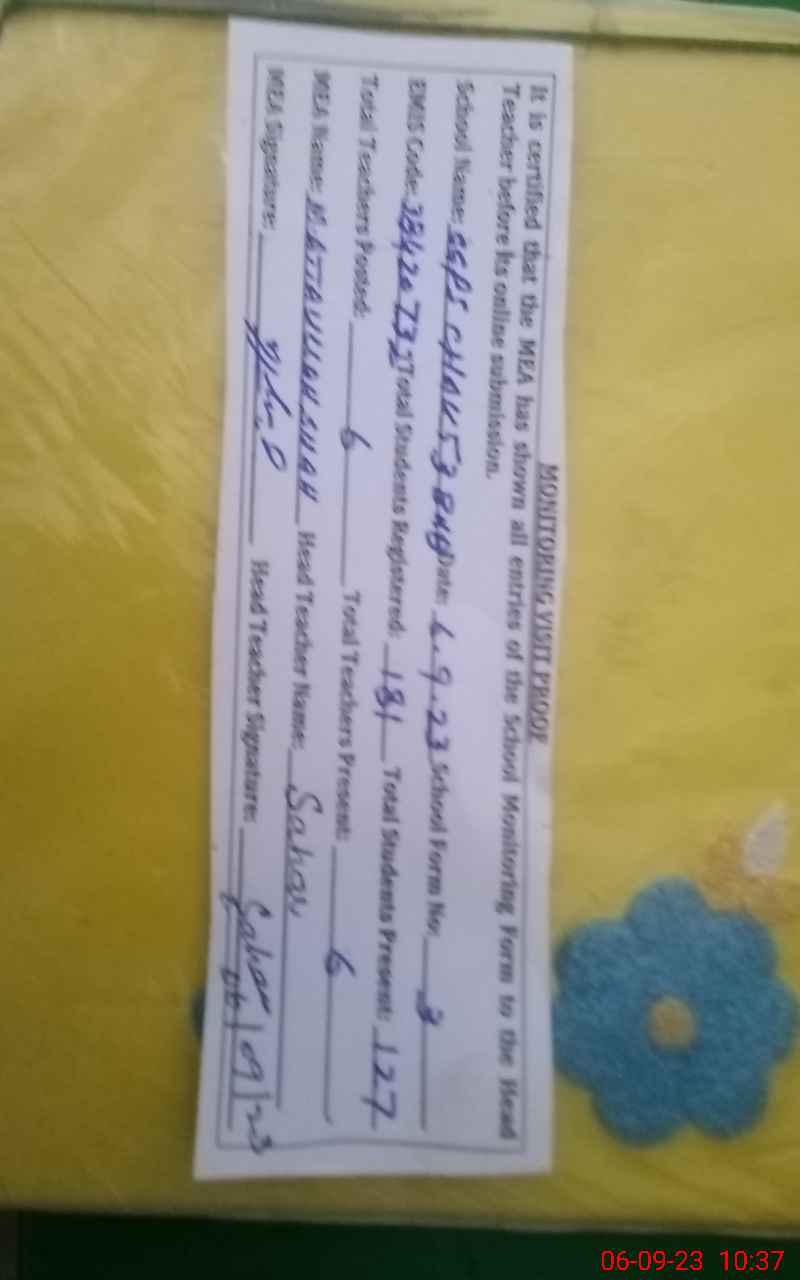 MONITORING VISIT PROOF
It is certified that the MEA has shown all entries of the School Monitoring Form to the Head
Teacher before its online submission.
School Name: GGPS CHAK 53 Date: 6.9.23 School Form No: 3
EMIS Code: 38420732 Total Students Registered: 181 Total Students Present: 127
Total Teachers Posted: 6 Total Teachers Present: 6
MEA Name: M ATTAULLAH SHAH Head Teacher Name: Sahar
MEA Signature: Head Teacher Signature: Sahar
06/09/23
06-09-23 10:37